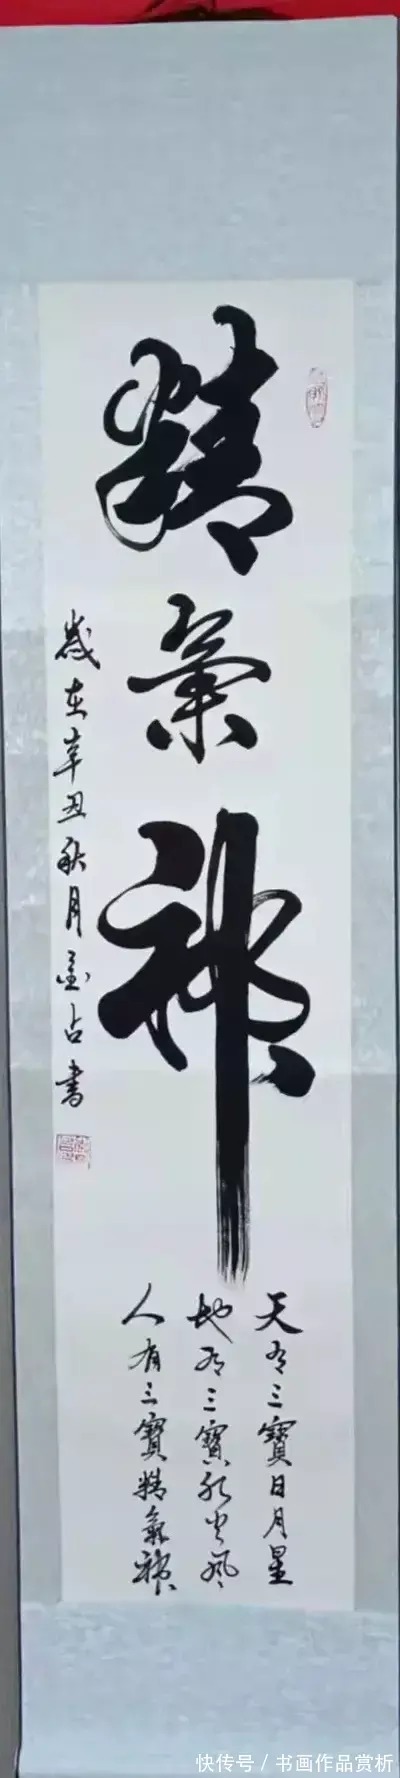 精氣神
天有三寶日月星
地有三寶水火風
人有三寶精氣神
歲在辛丑秋月占書
快传号 / 书画作品赏析